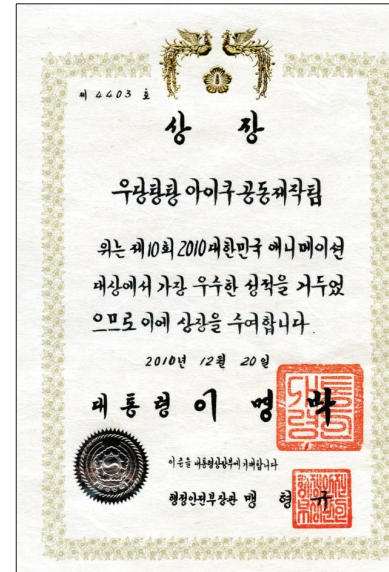 제 4403 호
상 장
우당탕탕 아이쿠 공동제작팀
위는 제10회 2010 대한민국 애니메이션
대상에서 가장 우수한 성적을 거두었
으므로 이에 상장을 수여합니다.
2010년 12월 20일
대통령 이 명 박
이 증을 대통령상장부에 기재합니다
행정안전부장관 맹 형 규